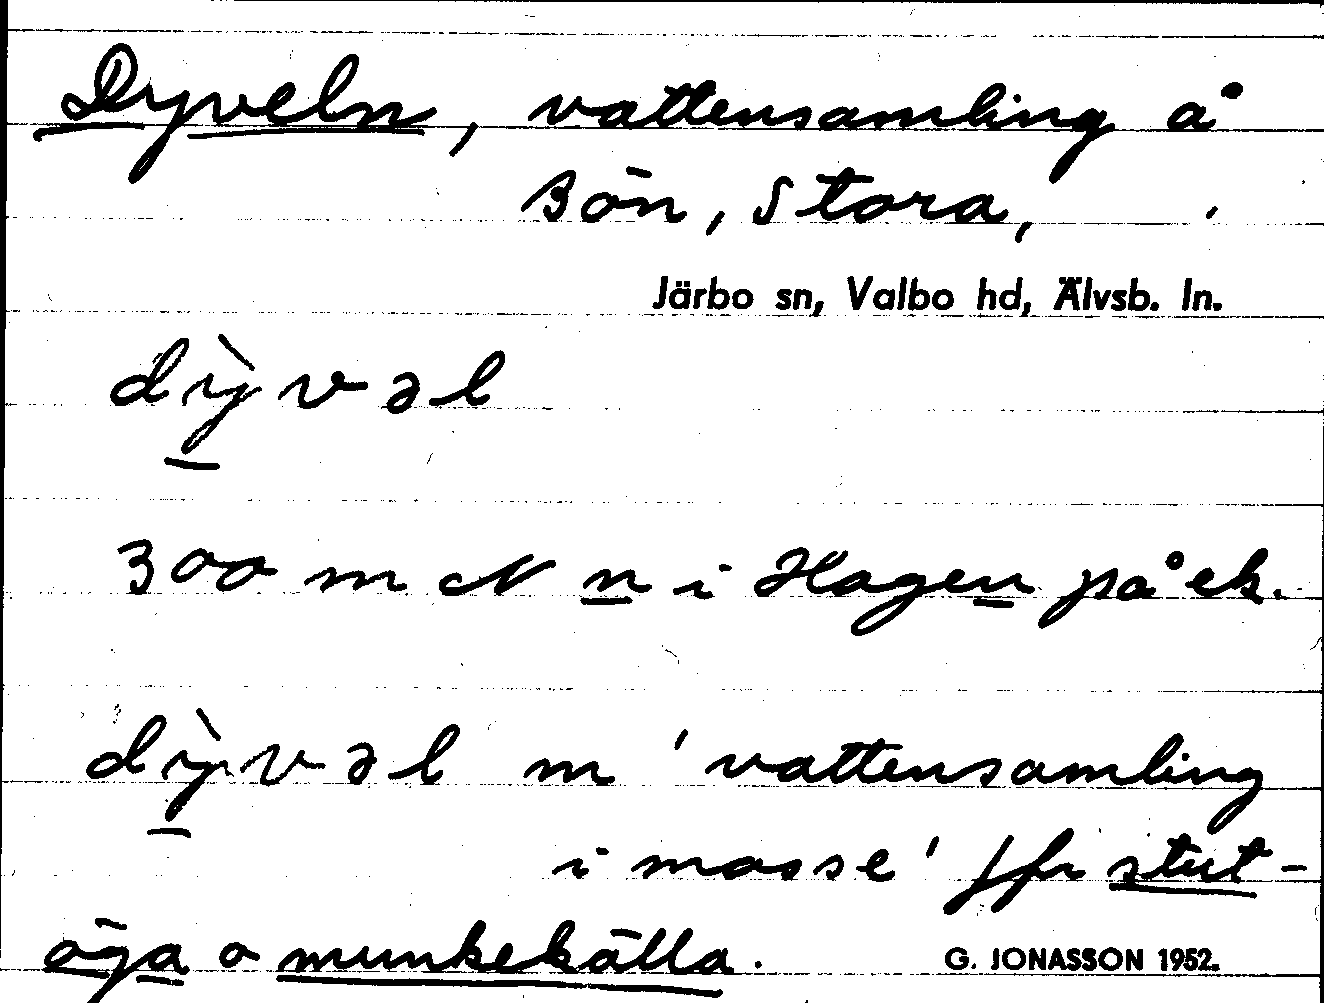 Dyveln, vattensamling å
Bön, Stora,
Järbo sn, Valbo hd, Älvsb. ln.
dỳvəl
300 m N n i Hagen på ek.
dỳvəl m 'vattensamling
i mosse' Jfr stut-
öga o munkekälla.
G. JONASSON 1952.